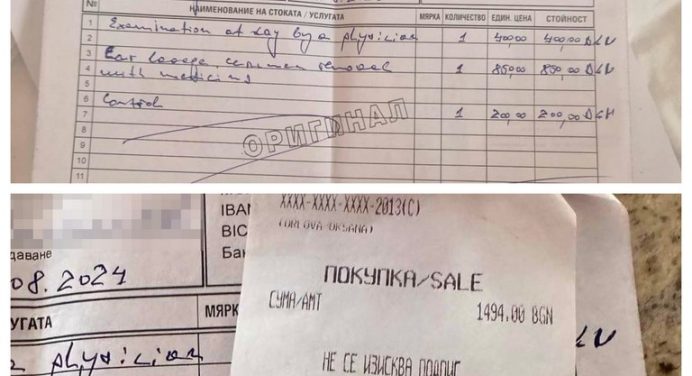 № НАИМЕНОВАНИЕ НА СТОКАТА / УСЛУГАТА МЯРКА КОЛИЧЕСТВО ЕДИН. ЦЕНА СТОЙНОСТ
1 Examination at day by a physician 1 400,00 400,00
2
3 Ear lavage, cerumen removal 1 850,00 850,00
4 with medicins
5
6 Control
7 1 200,00 200,00
8
9 ОРИГИНАЛ
10
11
XXXX-XXXX-XXXX-2013(C)
(ORLOVA OKSANA)
IBA
BIC
даване
08.2024
ПОКУПКА/SALE
СУМА/АМТ 1494.00 BGN
УГАТА МЯРК
physician
НЕ СЕ ИЗИСКВА ПОДПИС